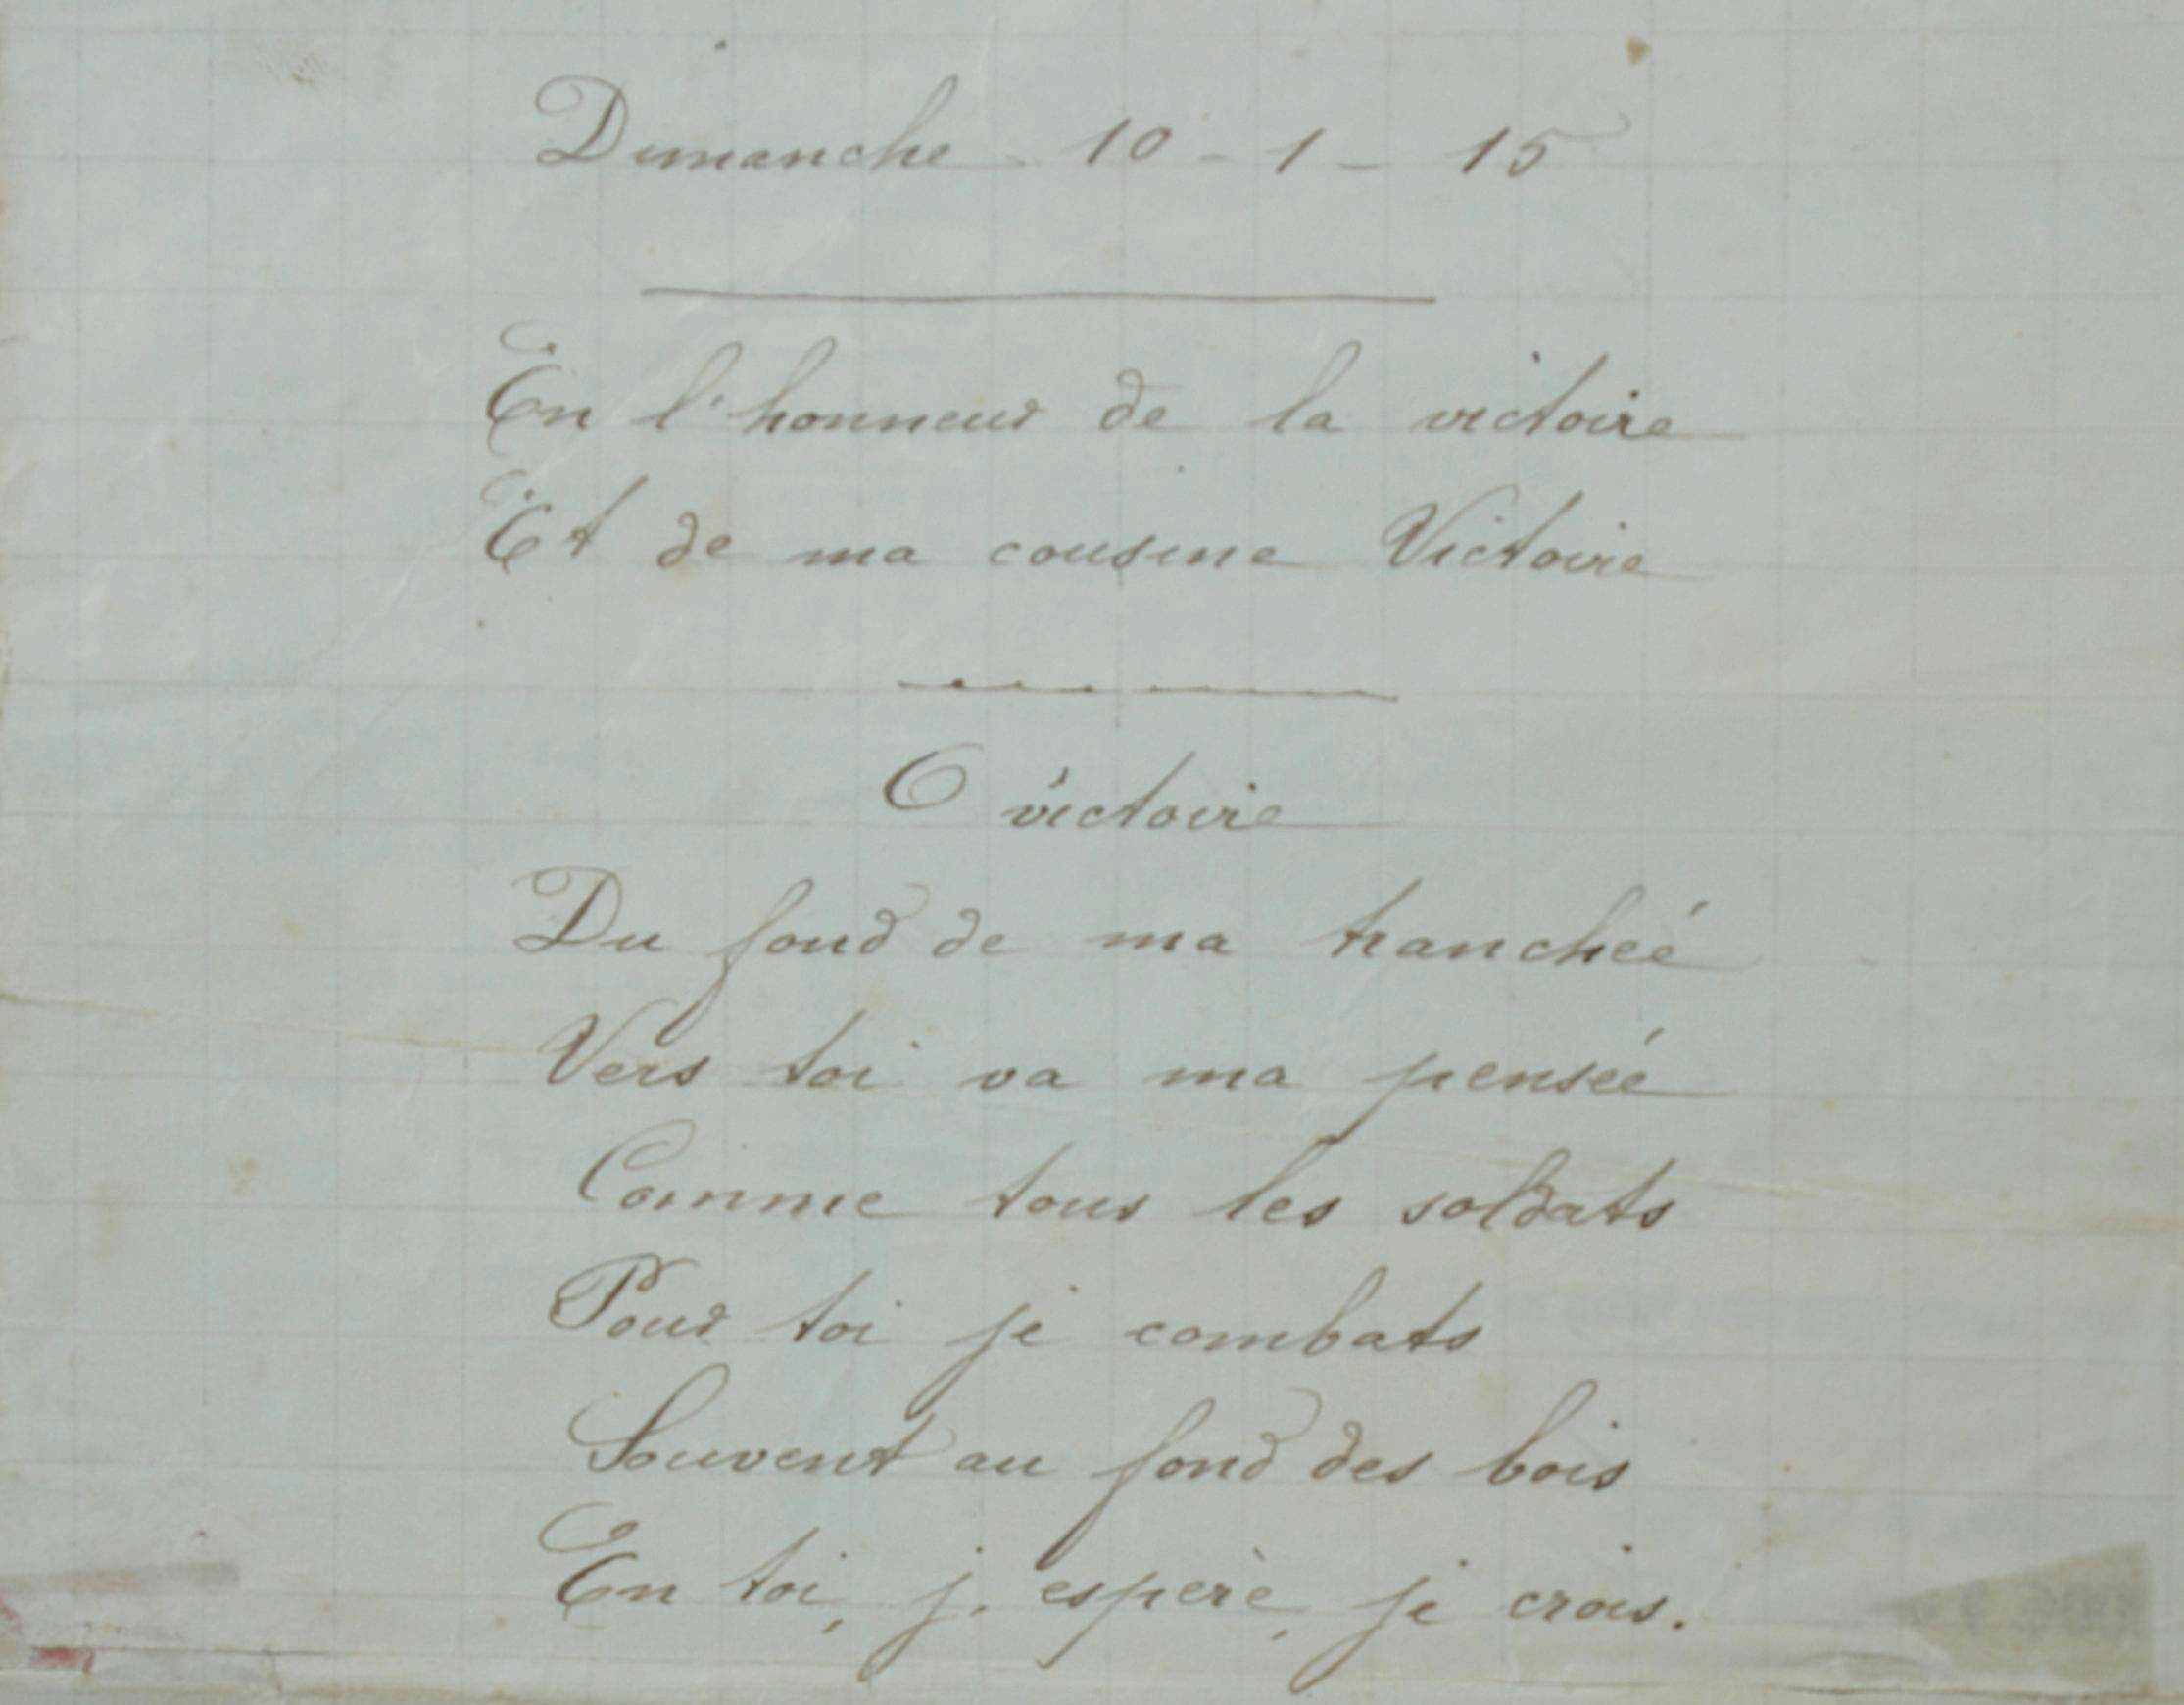 Dimanche - 10 - 1 - 15
En l'honneur de la victoire
Et de ma cousine Victoire
O victoire
Du fond de ma tranchée
Vers toi va ma pensée
Comme tous les soldats
Pour toi je combats
Souvent au fond des bois
En toi, j'espère, je crois.